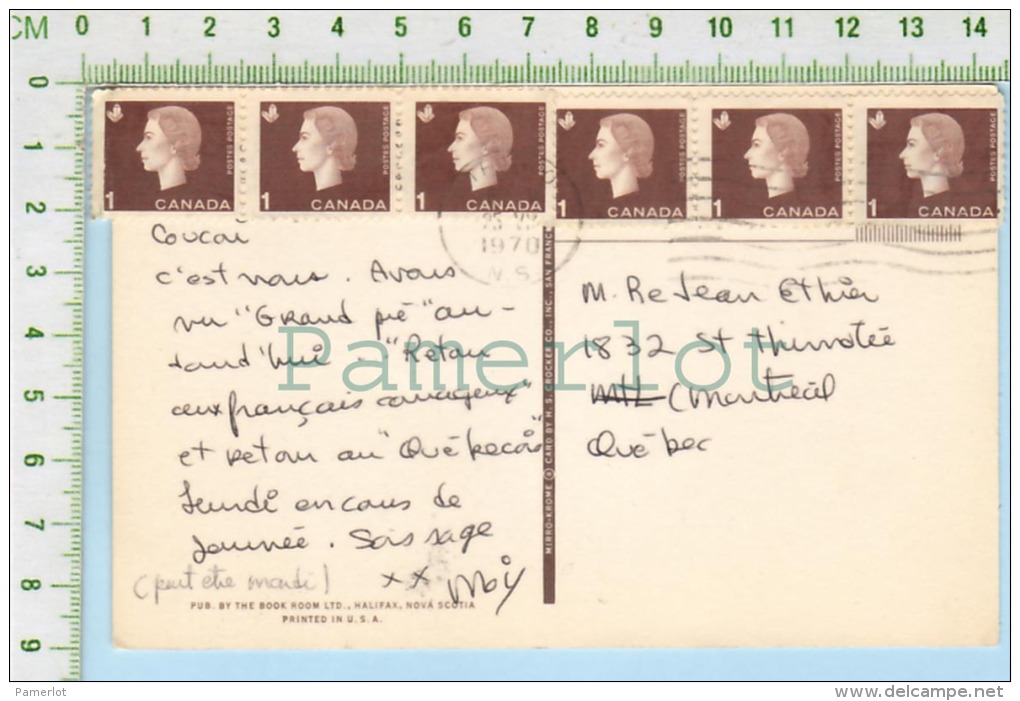 CM 0 1 2 3 4 5 6 7 8 9 10 11 12 13 14
0
1
2
3
4
5
6
7
8
9
POSTES POSTAGE
1 CANADA
POSTES POSTAGE
1 CANADA
POSTES POSTAGE
1 CANADA
POSTES POSTAGE
1 CANADA
POSTES POSTAGE
1 CANADA
POSTES POSTAGE
1 CANADA
1970
N.S.
Coucou
c'est nous. Avons
vu "Grand pré" au-
jourd'hui. "Retour
aux français courageux"
et retour au "Québecois"
Lundi en cours de
Journée. Sois sage
(peut etre mardi)
x x Moy
PUB. BY THE BOOK ROOM LTD., HALIFAX, NOVA SCOTIA
PRINTED IN U.S.A.
MIRRO-KROME ® CARD BY H. S. CROCKER CO., INC., SAN FRANC
M. Rejean Ethier
1832 St Thimotée
Mtl (Montréal
Québec
Pamerlot
Pamerlot
www.delcampe.net